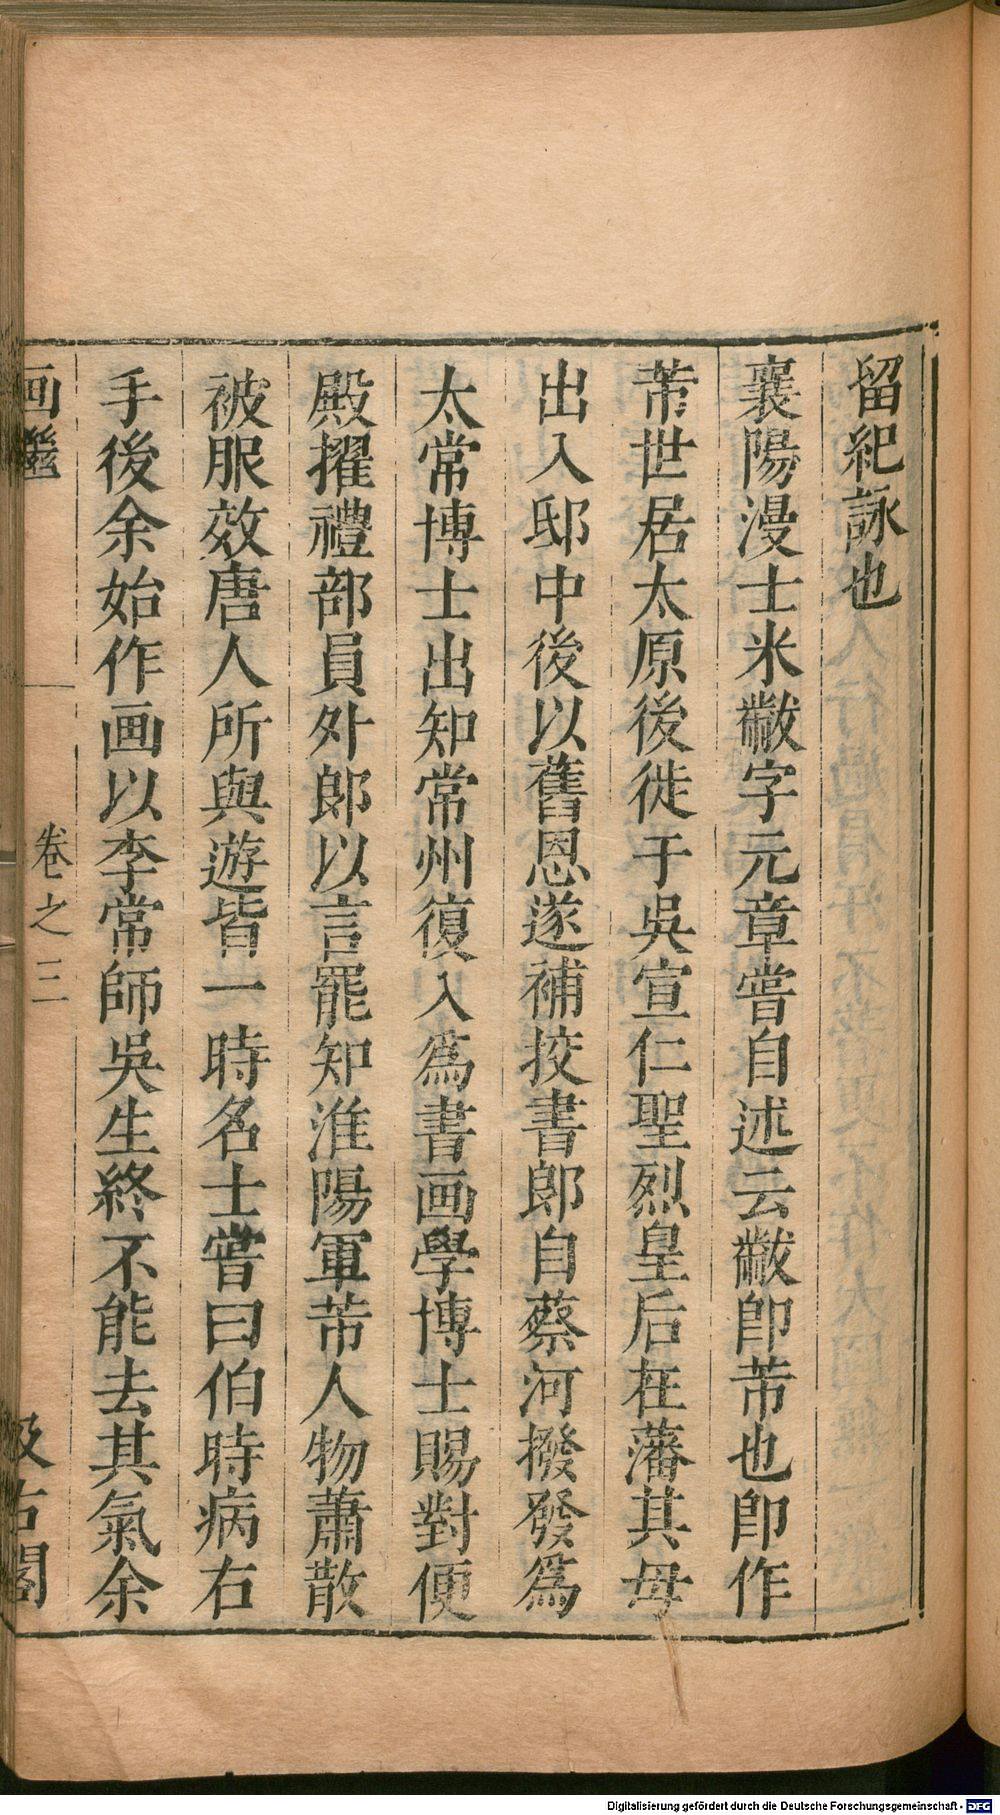 留紀詠也
襄陽漫士米黻字元章嘗自述云黻卽芾也卽作
芾世居太原後徙于吳宣仁聖烈皇后在藩其母
出入邸中後以舊恩遂補挍書郞自蔡河撥發爲
太常博士出知常州復入爲書画學博士賜對便
殿擢禮部員外郎以言罷知淮陽軍芾人物蕭散
被服效唐人所與遊皆一時名士嘗曰伯時病右
手後余始作画以李常師吳生終不能去其氣余
画繼 卷之三 汲古閣
Digitalisierung gefördert durch die Deutsche Forschungsgemeinschaft - DFG